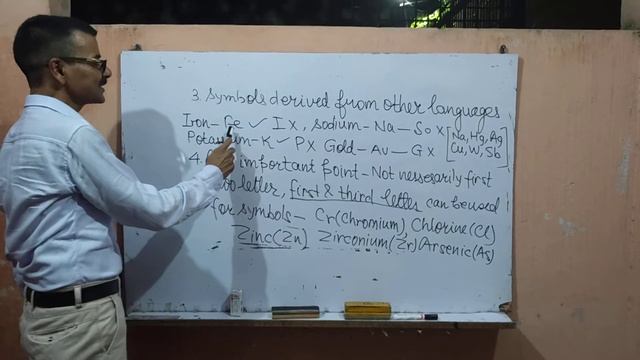 3. Symbols derived from other languages
Iron- Fe ✓ I X, Sodium- Na- So X [Na, Hg, Ag
Potassium-K ✓ P X Gold- Au- G X Cu, W, Sb]
4. important point- Not necessarily first
two letter, first & third letter can be used
for symbols- Cr(Chromium) Chlorine(Cl)
Zinc(Zn) Zirconium(Zr) Arsenic(As)